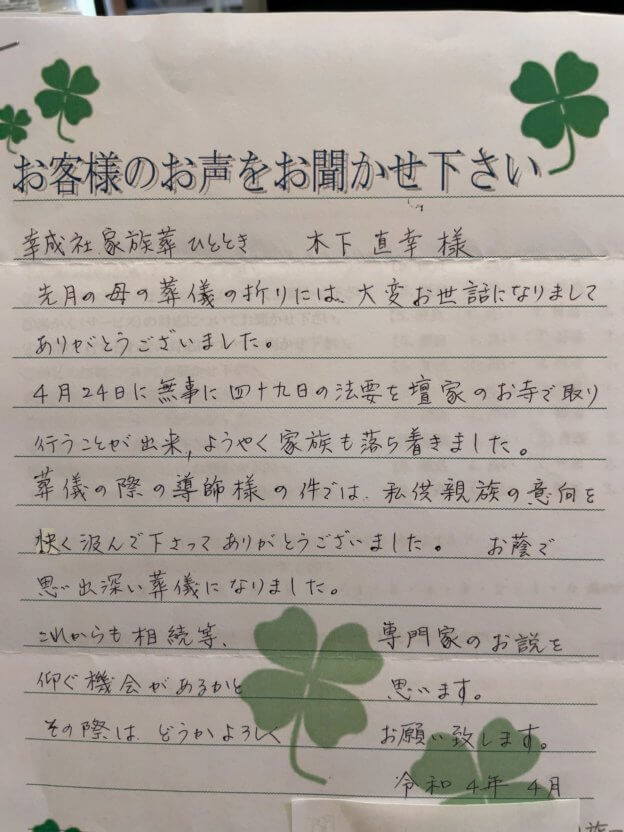 お客様のお声をお聞かせ下さい
幸成社家族葬ひととき 木下直幸様
先月の母の葬儀の折りには、大変お世話になりまして
ありがとうございました。
4月24日に無事に四十九日の法要を壇家のお寺で取り
行うことが出来,ようやく家族も落ち着きました。
葬儀の際の導師様の件では、私供親族の意向を
快く汲んで下さってありがとうございました。 お蔭で
思い出深い葬儀になりました。
これからも相続等、 専門家のお説を
仰ぐ機会があるかと 思います。
その際は、どうかよろしく お願い致します。
令和4年4月